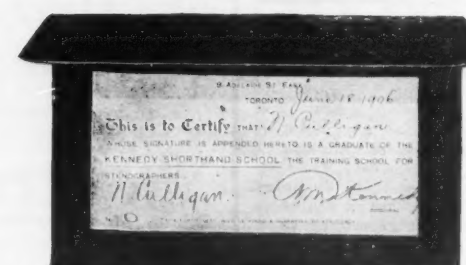 9 ADELAIDE ST. EAST
TORONTO June 18 1906
This is to Certify THAT N Culligan
WHOSE SIGNATURE IS APPENDED HERETO IS A GRADUATE OF THE
KENNEDY SHORTHAND SCHOOL, THE TRAINING SCHOOL FOR
STENOGRAPHERS.
N Culligan. Kennedy